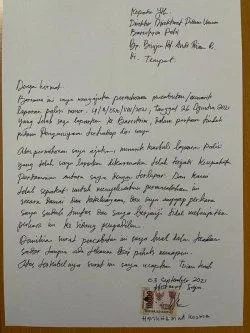 Kepada Yth.
Direktur Direktorat Pidana Umum
Bareskrim Polri
Bp. Brigjen Pol Andi Rian R.
Di. Tempat
Dengan hormat
Bersama ini saya mengajukan permohonan pencabutan
laporan polisi nomor. Tanggal 26 Agustus 2021
Yang telah saya laporkan ke Bareskrim, dalam perkara tindak
pidana Penganiayaan terhadap diri saya
Atas permohonan saya ajukan, menarik kembali laporan polisi
yang telah saya laporkan dikarenakan telah terjadi kesepakatan
Perdamaian antara saya dengan terlapor. Dan kami
telah sepakat untuk menyelesaikan permasalahan ini
secara damai dan kekeluargaan, dan saya anggap perkara
saya sudah tuntas dan saya berjanji tidak melanjutkan
perkara ini ke sidang pengadilan.
Demikian surat pencabutan ini saya buat dalam keadaan
sadar dengan ada tekanan dari pihak manapun.
Atas terkabulnya surat ini saya ucapkan Terima kasih
03 September 2021
Hormat Saya